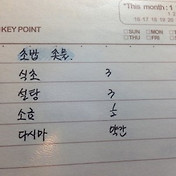 *This month : 1
18 17 18 19 20
KEY POINT
SUN MON TUE
THU FRI
초밥
식초 3
설탕 3
소금 1/2
다시마 약간